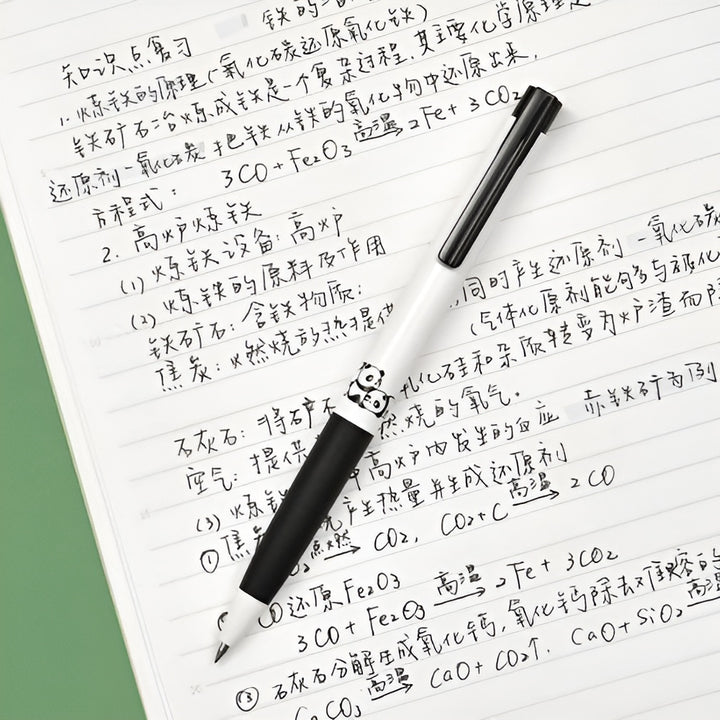 铁的
知识点复习
1. 炼铁的原理(一氧化碳还原氧化铁)
铁矿石冶炼成铁是一个复杂过程,其主要化学原理是
还原剂一氧化碳把铁从铁的氧化物中还原出来,
方程式: 3CO+Fe₂O₃ 高温→ 2Fe+3CO₂
2. 高炉炼铁
(1) 炼铁设备:高炉
(2) 炼铁的原料及作用
铁矿石:含铁物质;
焦炭:燃烧的热提供 ,同时产生还原剂一氧化碳
(气体化原剂能够与被化
石灰石:将矿石 化硅和杂质转变为炉渣而
空气:提供 燃烧的氧气。
(3) 炼铁 高炉内发生的反应 赤铁矿为例
① 焦 产生热量并生成还原剂
点燃→ CO₂, CO₂+C 高温→ 2CO
CO还原Fe₂O₃
3CO+Fe₂O₃ 高温→ 2Fe+3CO₂
③ 石灰石分解生成氧化钙,氧化钙除去难熔的
CaCO₃ 高温→ CaO+CO₂↑. CaO+SiO₂ 高温